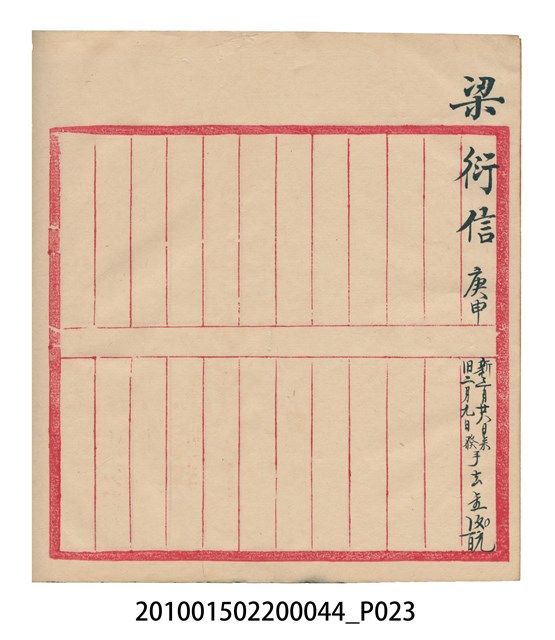 梁衍信 庚申
新三月廿八日來
旧二月九日發
手去
201001502200044_P023